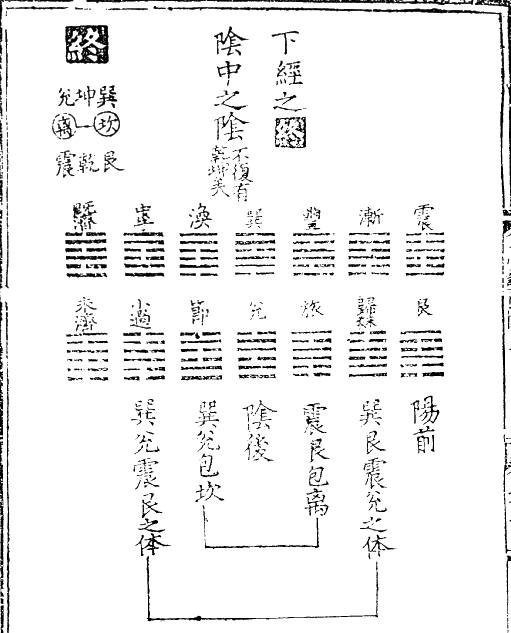 下經之終
陰中之陰
不復有
乾坤矣
終
巽坤兌
坎离
艮乾震
震 漸 豐 巽 渙 中孚 既濟
艮 歸妹 旅 兌 節 小過 未濟
陽前
巽艮震兌之体
震艮包离
陰後
巽兌包坎
巽兌震艮之体